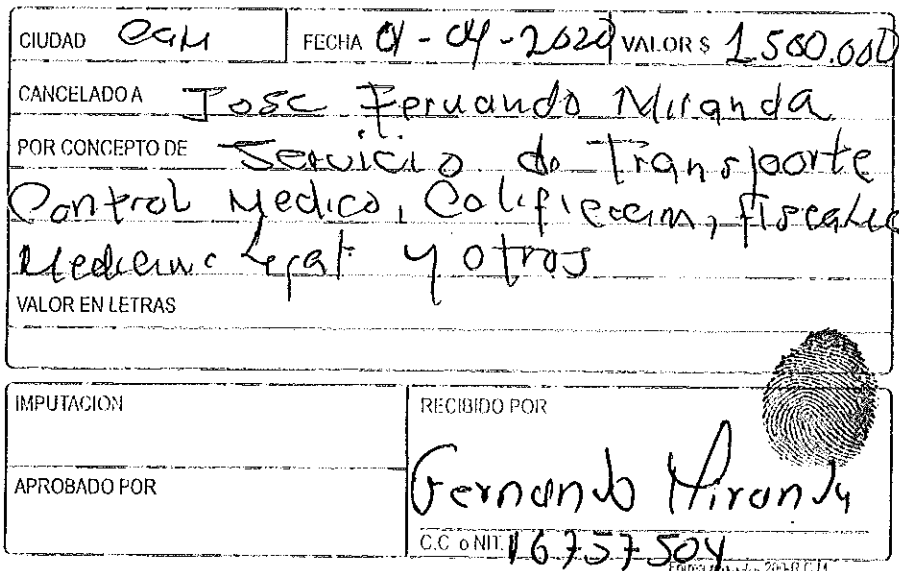 CIUDAD Cali FECHA 01-04-2020 VALOR $ 1.500.000
CANCELADO A Jose Fernando Miranda
POR CONCEPTO DE Servicio de Transporte
Control Medico, Calificacion, fiscalia
Medicina Legal y otros
VALOR EN LETRAS
IMPUTACION
RECIBIDO POR
APROBADO POR
Fernando Miranda
C.C. o NIT. 16757504